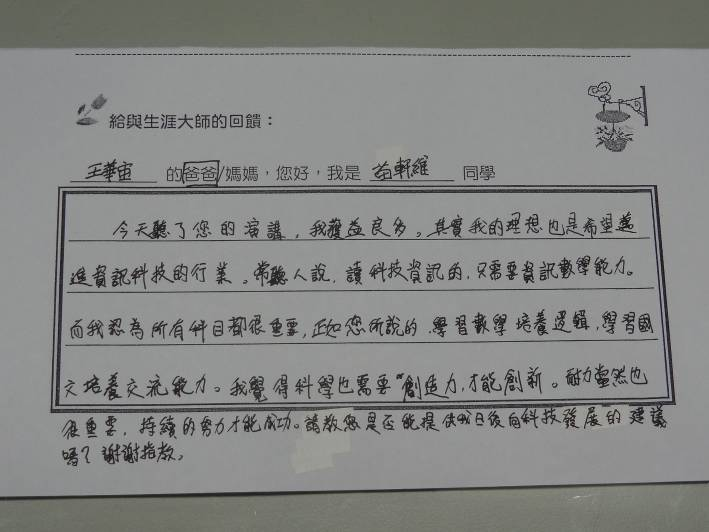 給與生涯大師的回饋：
王華宙 的爸爸/媽媽，您好，我是 苗軒維 同學
今天聽了您的演講，我獲益良多。其實我的理想也是希望邁
進資訊科技的行業。常聽人說，讀科技資訊的，只需要資訊數學能力。
而我認為所有科目都很重要，正如您所說的 學習數學培養邏輯，學習國
文培養交流能力。我覺得科學也需要“創造力，才能創新。耐力當然也
很重要，持續的努力才能成功。請教您是否能提供我日後向科技發展的建議
嗎？謝謝指教。